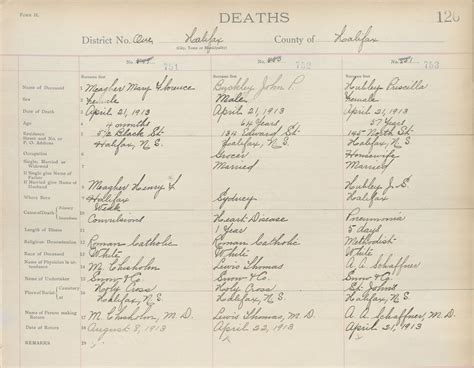 Form H.
DEATHS
120
District No. One, Halifax County of Halifax
(City, Town or Municipality)
No. 751 No. 752 No. 753
Surname first Surname first Surname first
Name of Deceased Meagher Mary Florence John P. Hubley Priscilla
Sex Female Male Female
Date of Death April 21, 1913 April 21, 1913 April 21, 1913
Age 4 months 64 Years 57 Years
Residence 5/2 Black St. 134 Edward St. 145 North St.
Street and No. or
P. O. Address Halifax, N.S. Halifax, N.S. Halifax, N.S.
Occupation Grocer Housewife
Single, Married or
Widowed Married Married
If Single give Name of
Father
If Married give Name of
Husband Meagher Henry Hubley J. S.
Where Born Halifax Sydney Halifax
Week
Cause of Death Convulsions Heart Disease Pneumonia
Length of Illness 1 Year 5 days
Religious Denomination Roman Catholic Roman Catholic Methodist
White White White
Name of Physician in attendance M. Chisholm Lewis Thomas A. A. Schaffner
Name of Undertaker Snow & Co. Snow & Co. Snow & Co.
Place of Burial Cemetery Holy Cross Holy Cross St. Johns
Halifax, N.S. Halifax, N.S. Halifax, N.S.
Name of Person making
Return M. Chisholm, M.D. Lewis Thomas, M.D. A. A. Schaffner, M.D.
Date of Return August 8, 1913 April 22, 1913 April 23, 1913
REMARKS